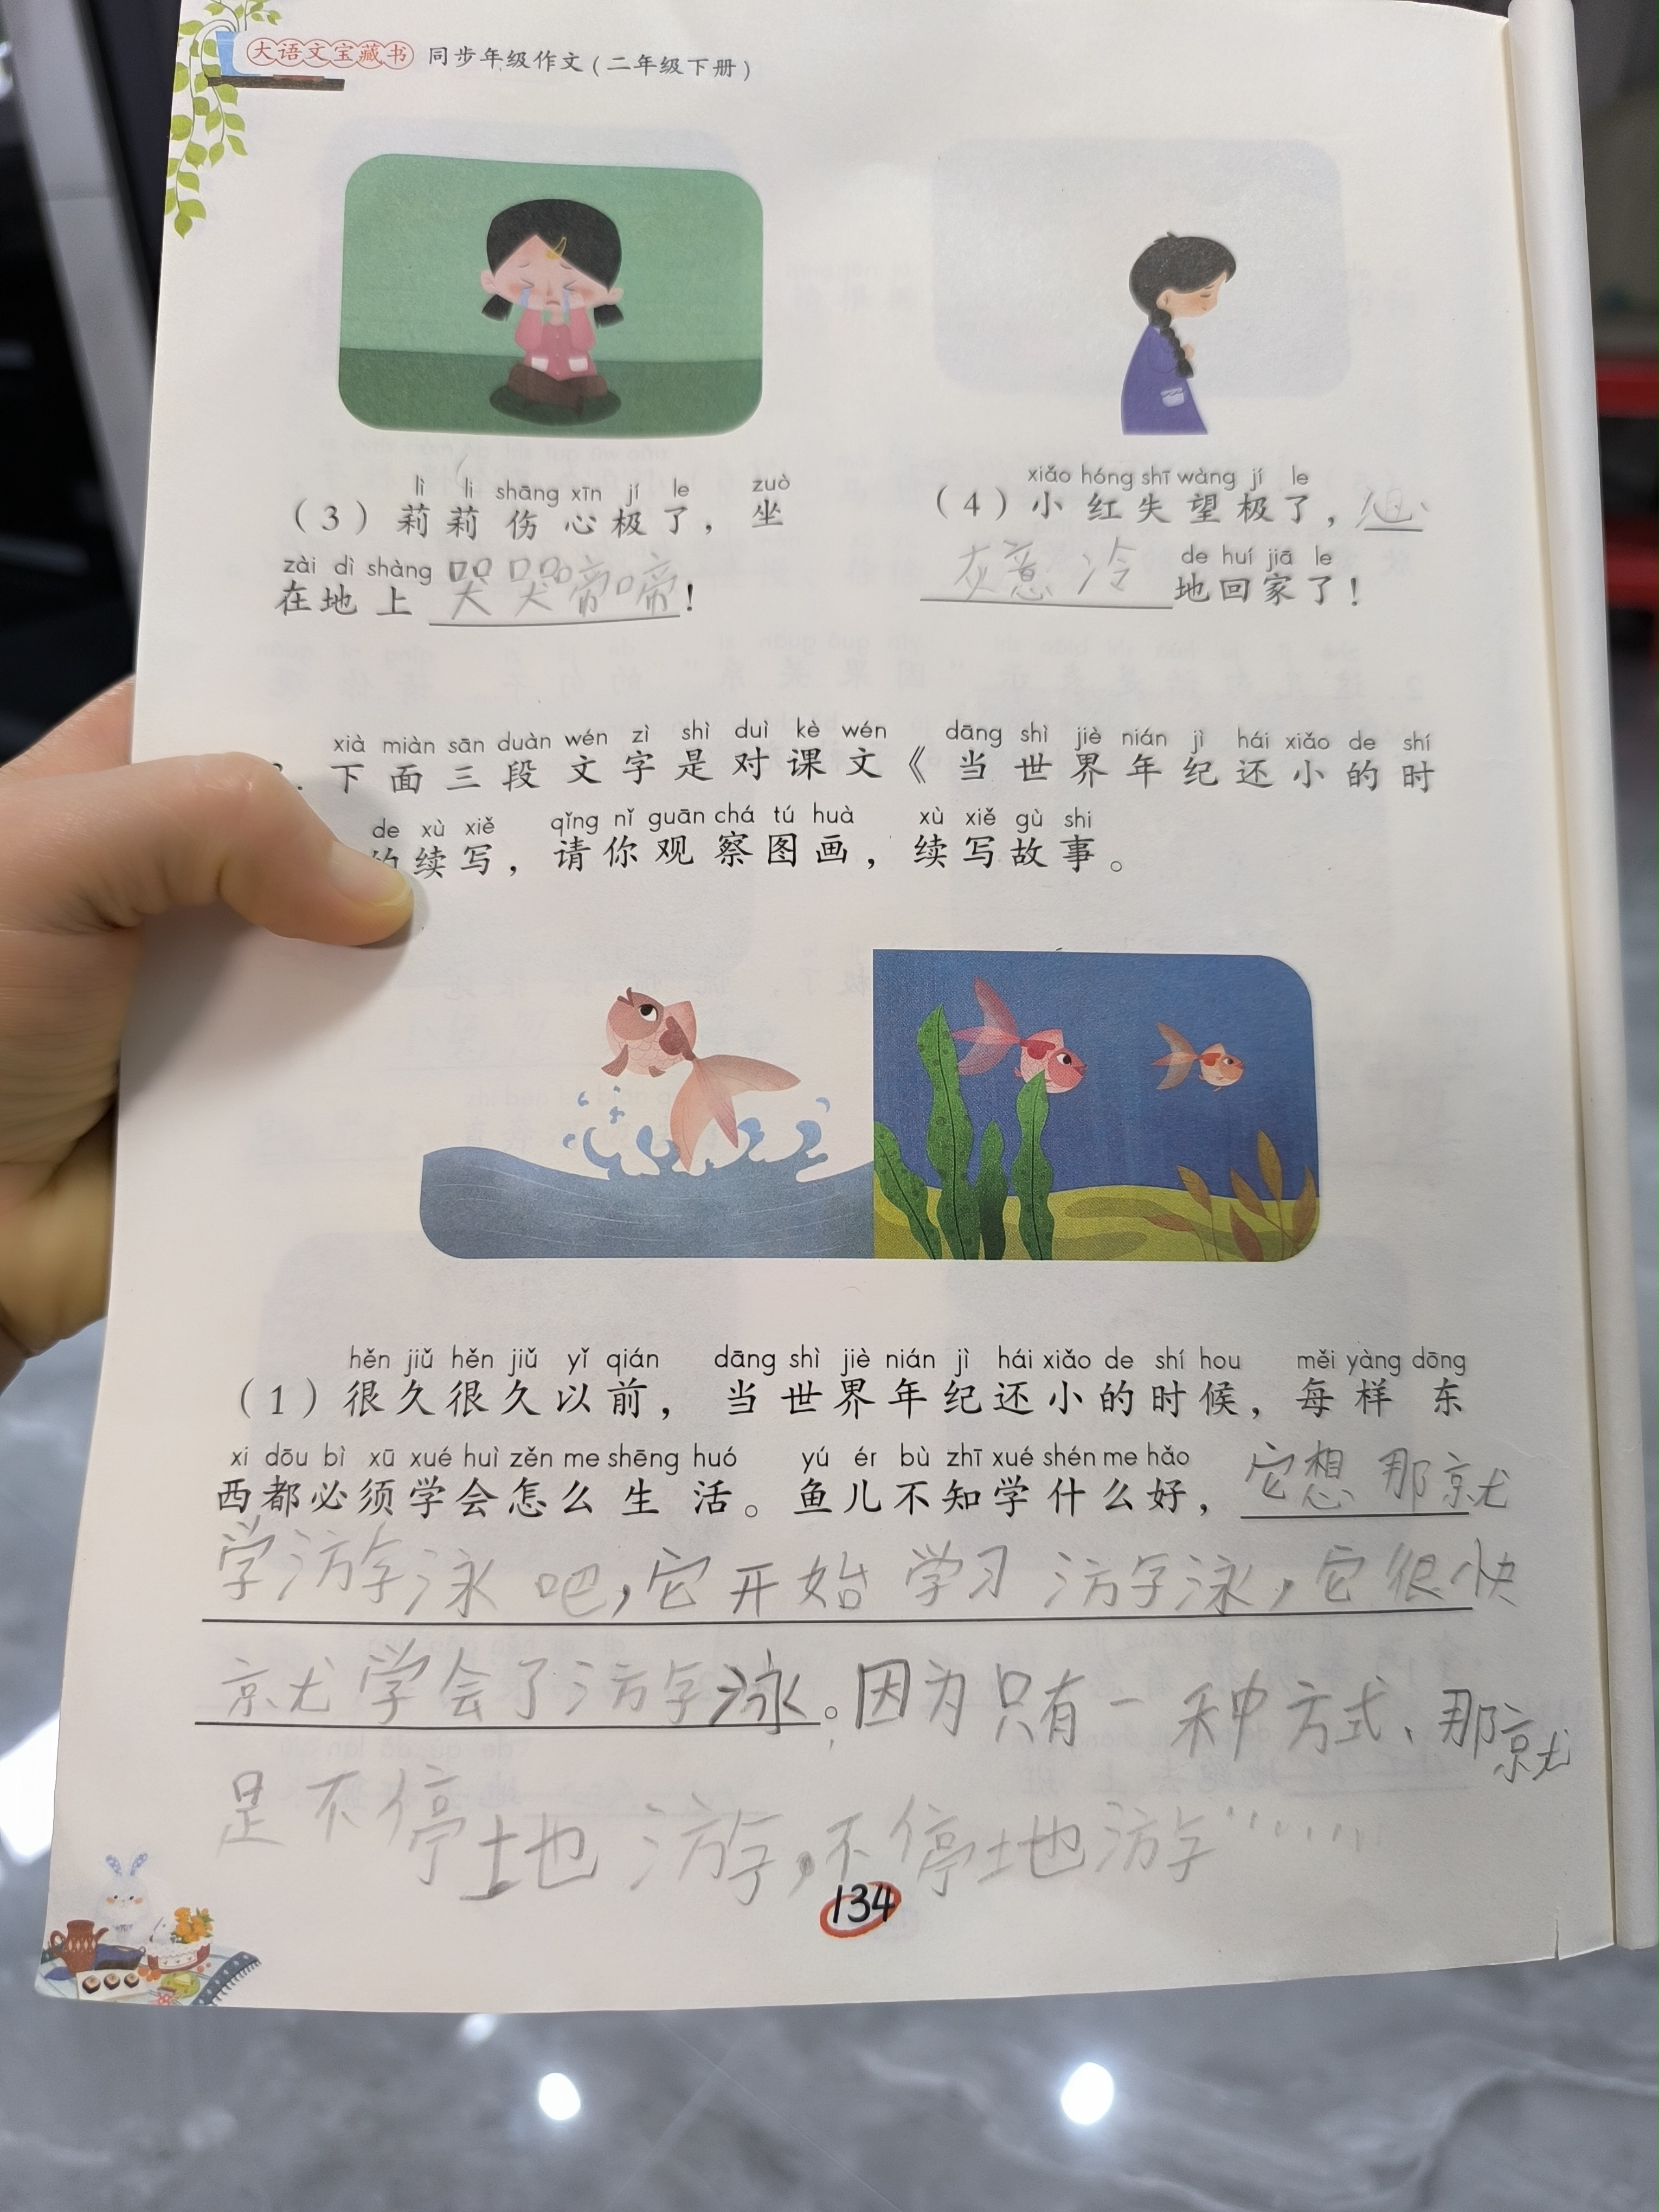 大语文宝藏书 同步年级作文（二年级下册）
lì li shāng xīn jí le zuò
（3）莉莉伤心极了，坐
zài dì shàng
在地上哭哭啼啼！
xiǎo hóng shī wàng jí le
（4）小红失望极了，心
de huí jiā le
灰意冷地回家了！
xià miàn sān duàn wén zì shì duì kè wén dāng shì jiè nián jì hái xiǎo de shí
下面三段文字是对课文《当世界年纪还小的时
de xù xiě qǐng nǐ guān chá tú huà xù xiě gù shi
的续写，请你观察图画，续写故事。
hěn jiǔ hěn jiǔ yǐ qián dāng shì jiè nián jì hái xiǎo de shí hou měi yàng dōng
（1）很久很久以前，当世界年纪还小的时候，每样东
xi dōu bì xū xué huì zěn me shēng huó yú ér bù zhī xué shén me hǎo
西都必须学会怎么生活。鱼儿不知学什么好，它想那就
学游泳吧，它开始学习游泳，它很快
就学会了游泳。因为只有一种方式、那就
是不停地游，不停地游……
134